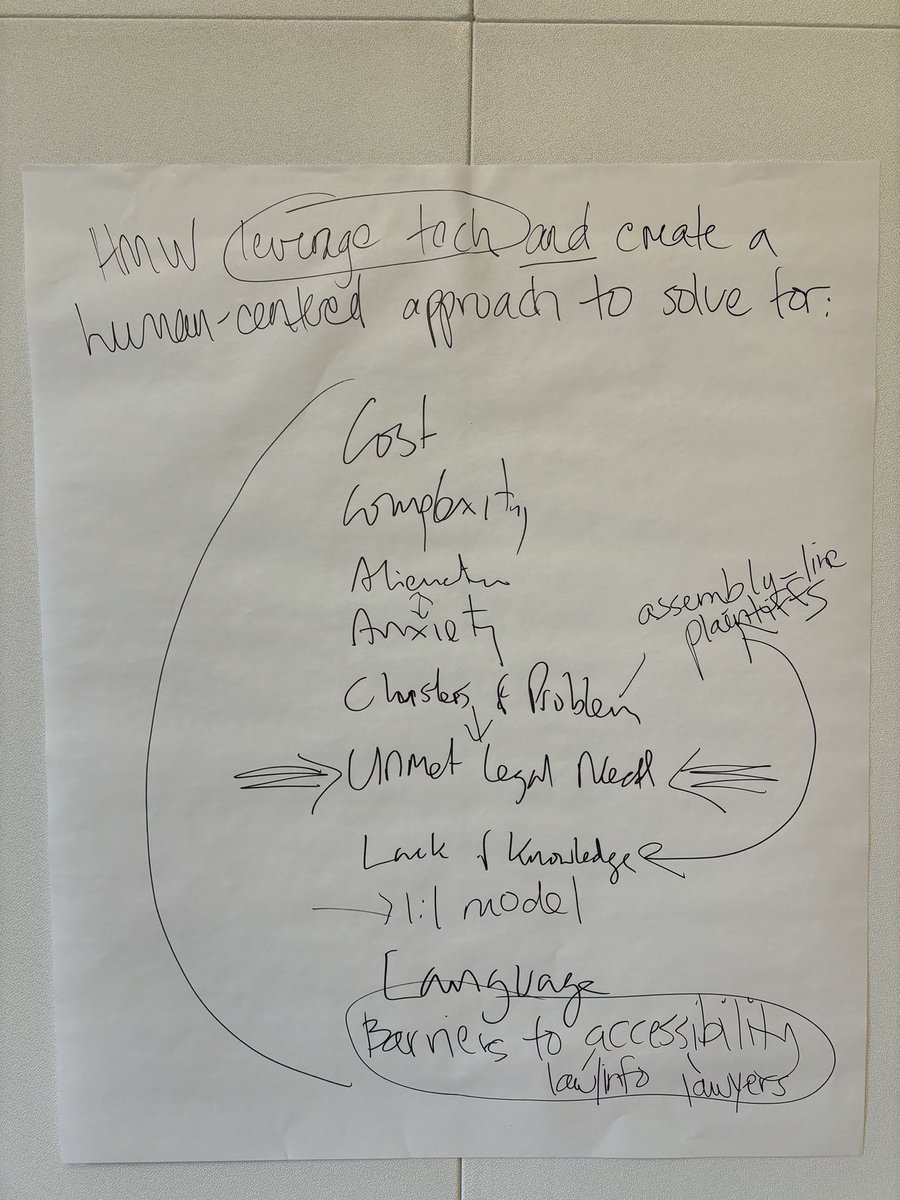 HMW leverage tech and create a
human-centred approach to solve for:
Cost
Complexity
Alienation
Anxiety
assembly-line
plaintiffs
Clusters of Problem
Unmet Legal Need
Lack of Knowledge
1:1 model
Language
Barriers to accessibility
law/info lawyers